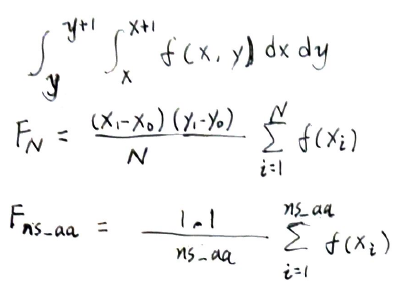 ∫_y^{y+1} ∫_x^{x+1} f(x, y) dx dy
F_N = \frac{(x_1-x_0)(y_1-y_0)}{N} \sum_{i=1}^{N} f(x_i)
F_{ns_aa} = \frac{1 \cdot 1}{ns_aa} \sum_{i=1}^{ns_aa} f(x_i)